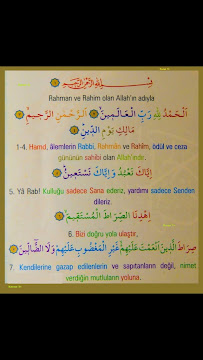 بِسْمِ اللهِ الرَّحْمٰنِ الرَّحِيمِ
Rahman ve Rahim olan Allah'ın adıyla
اَلْحَمْدُ لِلّٰهِ رَبِّ الْعَالَمِينَ اَلرَّحْمٰنِ الرَّحِيمِ
مَالِكِ يَوْمِ الدِّينِ
1-4. Hamd, âlemlerin Rabbi, Rahmân ve Rahîm, ödül ve ceza
gününün sahibi olan Allah'ındır.
اِيَّاكَ نَعْبُدُ وَاِيَّاكَ نَسْتَعِينُ
5. Yâ Rab! Kulluğu sadece Sana ederiz, yardımı sadece Senden
dileriz.
اِهْدِنَا الصِّرَاطَ الْمُسْتَقِيمَ
6. Bizi doğru yola ulaştır,
صِرَاطَ الَّذِينَ اَنْعَمْتَ عَلَيْهِمْ غَيْرِ الْمَغْضُوبِ عَلَيْهِمْ وَلَا الضَّالِّينَ
7. Kendilerine gazap edilenlerin ve sapıtanların değil, nimet
verdiğin mutluların yoluna.